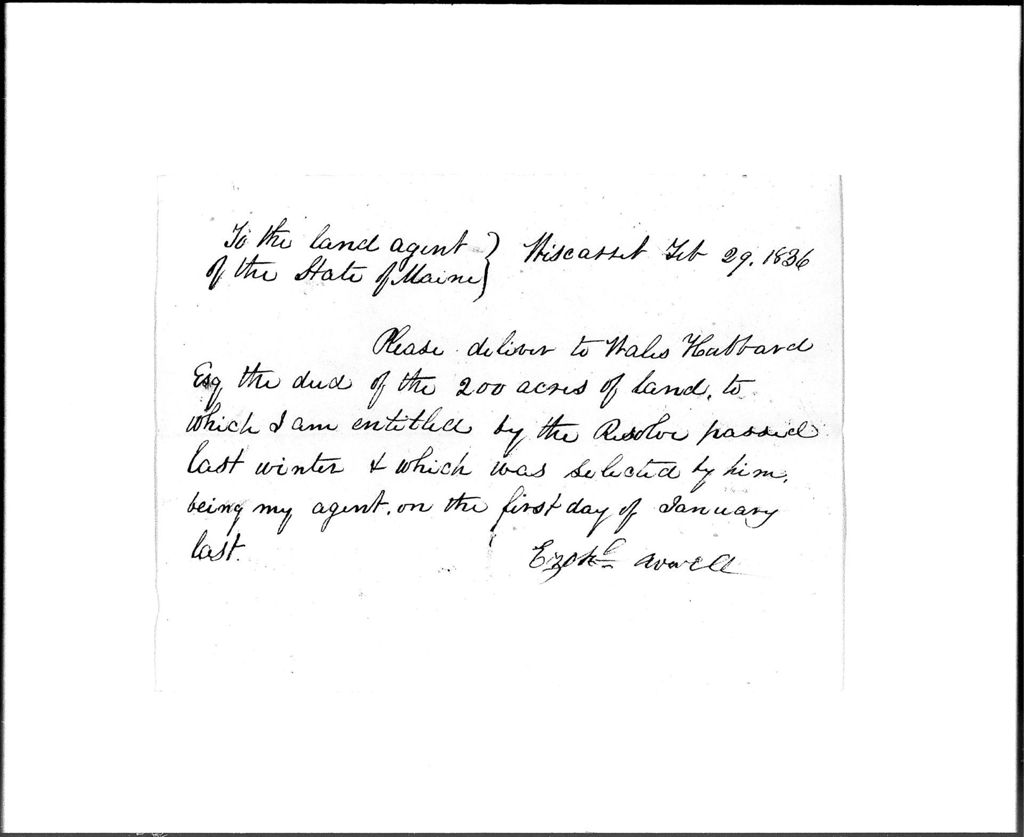 To the land agent } Wiscasset Feb 29. 1836
of the State of Maine
Please deliver to Wales Hubbard
Esq the deed of the 200 acres of land, to
which I am entitled by the Resolve passed
last winter & which was selected by him,
being my agent, on the first day of January
last.
Ezekl Averell